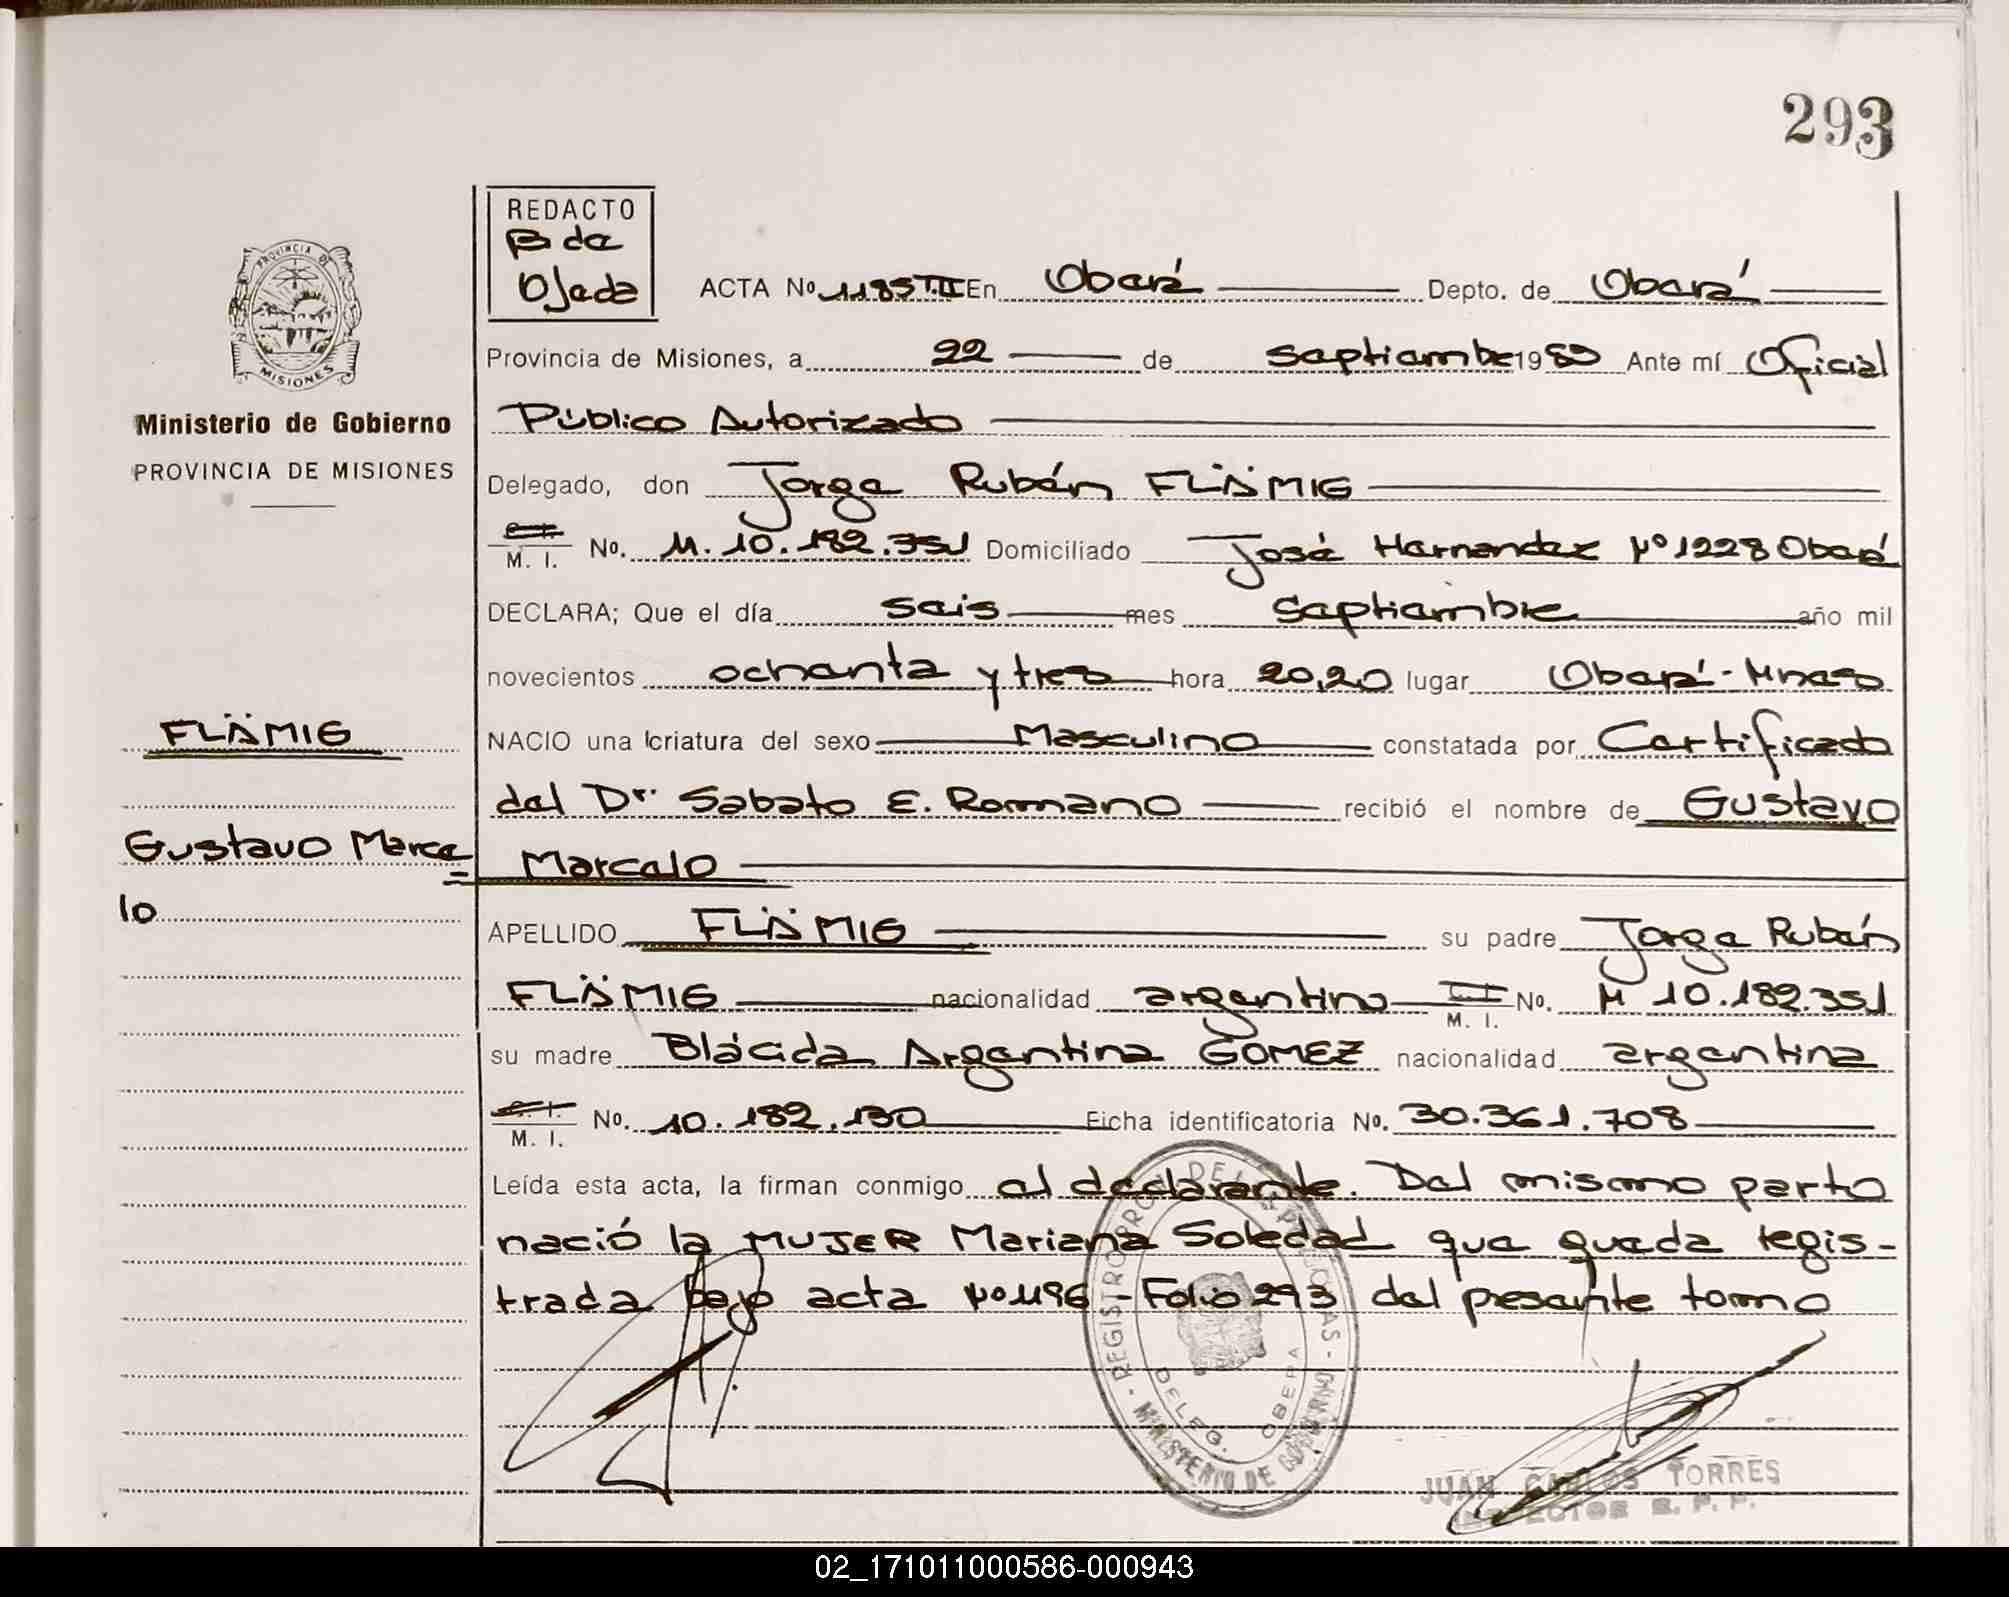 293
REDACTO
B de
Ojeda
ACTA No. 1185 T.II En Oberá Depto. de Oberá
PROVINCIA DE
MISIONES
Provincia de Misiones, a 22 de septiembre 1983 Ante mí Oficial
Ministerio de Gobierno
Público Autorizado
PROVINCIA DE MISIONES
Delegado, don Jorge Rubén FLÄMIG
M. I. No. M. 10.182.351 Domiciliado José Hernandez Nº 1228 Oberá
DECLARA; Que el día seis mes Septiembre año mil
novecientos ochenta y tres hora 20,20 lugar Oberá - Mnes
FLÄMIG
NACIO una criatura del sexo Masculino constatada por Certificado
del Dr. Sabato E. Romano recibió el nombre de Gustavo
Gustavo Marce=
lo
Marcelo
APELLIDO FLÄMIG su padre Jorge Rubén
FLÄMIG nacionalidad argentino M. I. No. M 10.182.351
su madre Blácida Argentina GOMEZ nacionalidad argentina
M. I. No. 10.182.130 Ficha identificatoria No. 30.361.708
Leída esta acta, la firman conmigo el declarante. Del mismo parto
nació la MUJER Mariana Soledad que queda regis-
trada bajo acta Nº 1196 - Folio 293 del presente tomo
MINISTERIO DE GOBIERNO
DELEG. OBERA
JUAN CARLOS TORRES
02_171011000586-000943